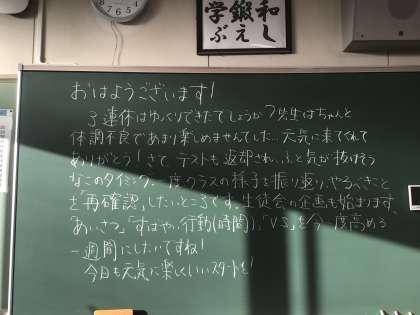 和し
鍛え
学ぶ
おはようございます！
3連休はゆっくりできたでしょうか？先生はちゃんと
体調不良であまり楽しめませんでした…元気に来てくれて
ありがとう！さて、テストも返却され、ふと気が抜けそう
なこのタイミング、一度クラスの様子を振り返り、やるべきこと
を「再確認」したいところです。生徒会の企画も始まります。
「あいさつ」「すばやい行動(時間)」「VS」を今一度高める
一週間にしたいですね！
今日も元気に楽しくいいスタートを！